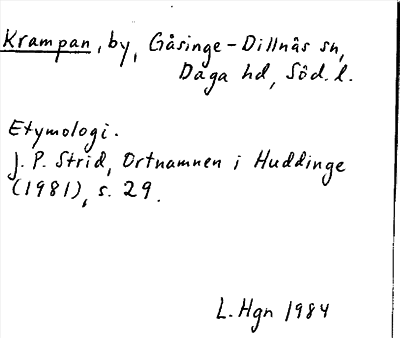 Krampan, by, Gåsinge-Dillnäs sn,
Daga hd, Söd. l.
Etymologi.
J. P. Strid, Ortnamnen i Huddinge
(1981), s. 29.
L. Hgn 1984